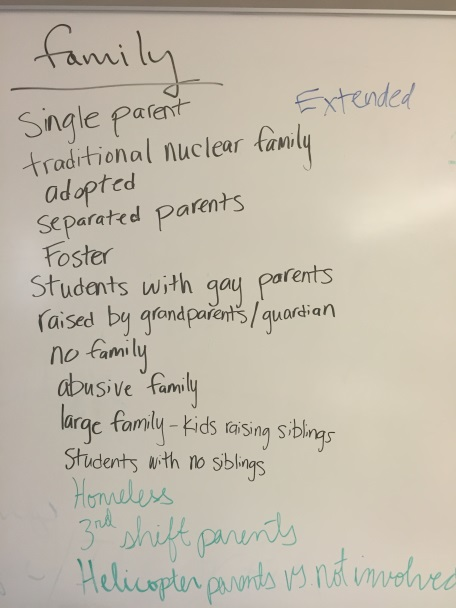 family
Extended
Single parent
traditional nuclear family
adopted
separated parents
Foster
Students with gay parents
raised by grandparents/guardian
no family
abusive family
large family - kids raising siblings
Students with no siblings
Homeless
3rd shift parents
Helicopter parents vs not involved